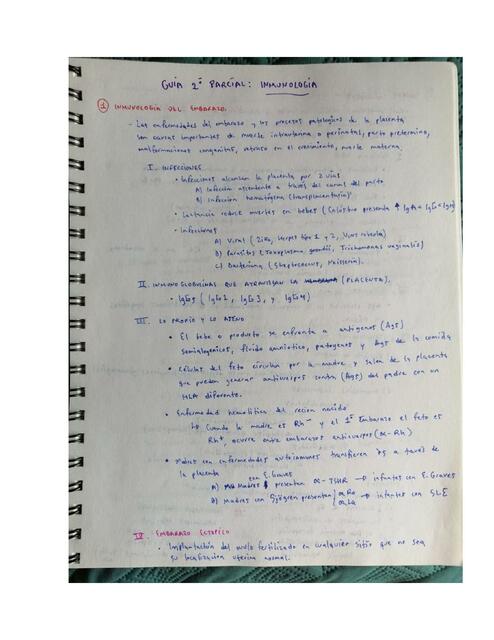 GUÍA 2º PARCIAL: INMUNOLOGÍA
1 INMUNOLOGÍA DEL EMBARAZO.
- Las enfermedades del embarazo y los procesos patologicos de la placenta
son causas importantes de muerte intrauterina o perinatal, parto pretermino,
malformaciones congenitas, retraso en el crecimiento, muerte materna.
I. INFECCIONES
• Infecciones alcanzan la placenta por 2 vias
A) Infección ascendente a través del canal del parto
B) Infección hematógena (transplacentaria)
• Lactancia reduce muertes en bebes (Calostro presenta ↑ IgA < IgG <
• Infecciones
A) Viral (Zika, Herpes tipo 1 y 2, Virus rubeola)
B) Parasitos (Toxoplasma gondii, Trichomonas vaginalis)
C) Bacteriana (Streptococcus, Neisseria).
II. INMUNOGLOBULINAS QUE ATRAVIESAN LA (PLACENTA).
• IgGs (IgG1, IgG3, y IgG4)
III. LO PROPIO Y LO AJENO
• El bebe o producto se enfrenta a antigenos (Ags)
semialogenicos, fluido amniotico, patogenos y Ags de la comida
• Células del feto circulan por la madre y salen de la placenta
que pueden generar anticuerpos contra (Ags) del padre con un
HLA diferente.
• Enfermedad hemolitica del recien nacido
↳ Cuando la madre es Rh⁻ y el 1º Embarazo el feto es
Rh⁺, ocurre entre embarazos anticuerpos (α-Rh)
• Madres con enfermedades autoinmunes transfieren a través de
la placenta
A) Madres con E. Graves presentan α-TSHR → infantes con E. Graves
B) Madres con Sjögren presentan { αRo αLa → infantes con SLE
IV EMBARAZO ECTOPICO
• Implantación del ovulo fertilizado en cualquier sitio que no sea
su localización uterina normal.